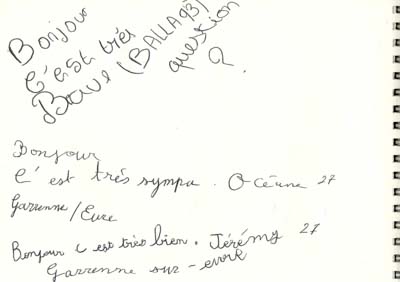 Bonjour
C'est trés
Bave (BALLA93)
question
Bonjour
C'est trés sympa. Océane 27
Garenne/Eure
Bonjour c est très bien. Jérémy 27
Garenne sur-eure